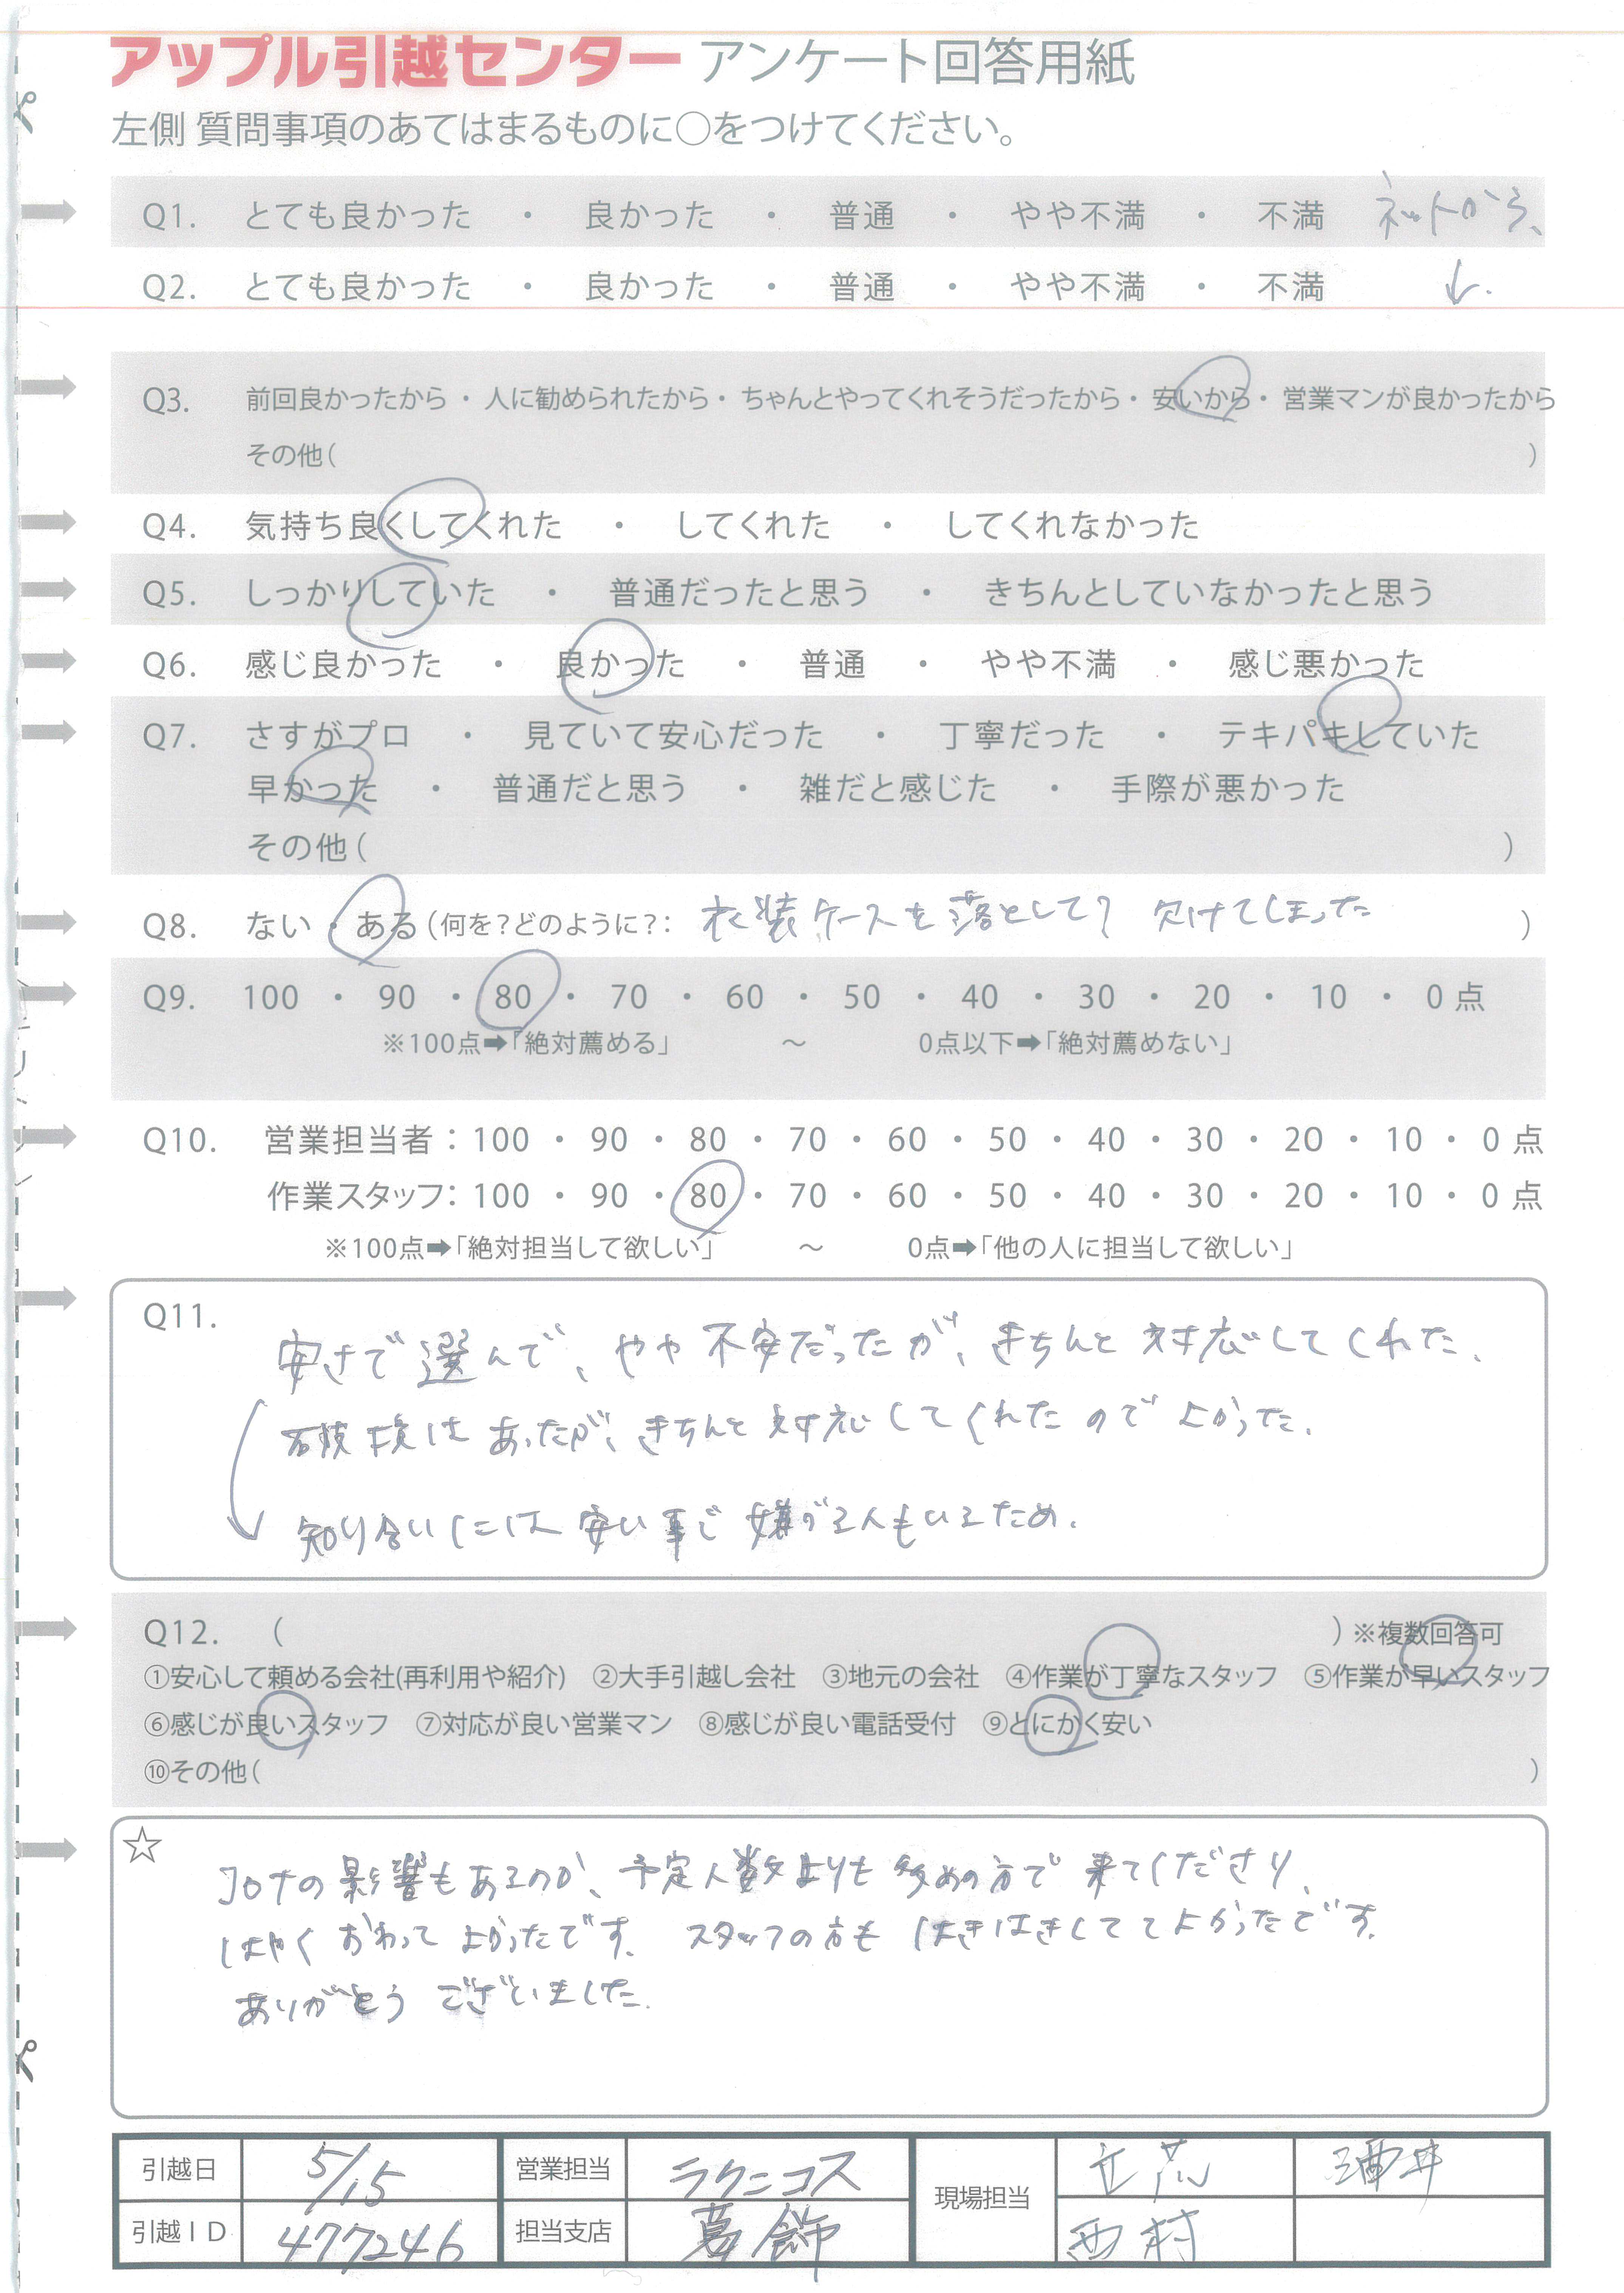 アップル引越センター アンケート回答用紙
左側 質問事項のあてはまるものに○をつけてください。
Q1. とても良かった ・ 良かった ・ 普通 ・ やや不満 ・ 不満 ネットから、
Q2. とても良かった ・ 良かった ・ 普通 ・ やや不満 ・ 不満 ↓.
Q3. 前回良かったから ・ 人に勧められたから ・ ちゃんとやってくれそうだったから ・ 安いから ・ 営業マンが良かったから
その他( )
Q4. 気持ち良くしてくれた ・ してくれた ・ してくれなかった
Q5. しっかりしていた ・ 普通だったと思う ・ きちんとしていなかったと思う
Q6. 感じ良かった ・ 良かった ・ 普通 ・ やや不満 ・ 感じ悪かった
Q7. さすがプロ ・ 見ていて安心だった ・ 丁寧だった ・ テキパキしていた
早かった ・ 普通だと思う ・ 雑だと感じた ・ 手際が悪かった
その他( )
Q8. ない ・ ある (何を?どのように?: 衣装ケースを落として? 欠けてしまった )
Q9. 100 ・ 90 ・ 80 ・ 70 ・ 60 ・ 50 ・ 40 ・ 30 ・ 20 ・ 10 ・ 0 点
※100点➡「絶対薦める」 ～ 0点以下➡「絶対薦めない」
Q10. 営業担当者：100 ・ 90 ・ 80 ・ 70 ・ 60 ・ 50 ・ 40 ・ 30 ・ 20 ・ 10 ・ 0 点
作業スタッフ：100 ・ 90 ・ 80 ・ 70 ・ 60 ・ 50 ・ 40 ・ 30 ・ 20 ・ 10 ・ 0 点
※100点➡「絶対担当して欲しい」 ～ 0点➡「他の人に担当して欲しい」
Q11.
安さで選んで、やや不安だったが、きちんと対応してくれた、
破損はあったが、きちんと対応してくれたのでよかった.
知り合いには安い事で嫌がる人もいるため.
Q12. ( ) ※複数回答可
①安心して頼める会社(再利用や紹介) ②大手引越し会社 ③地元の会社 ④作業が丁寧なスタッフ ⑤作業が早いスタッフ
⑥感じが良いスタッフ ⑦対応が良い営業マン ⑧感じが良い電話受付 ⑨とにかく安い
⑩その他( )
☆
コロナの影響もあるのか、予定人数よりも多めの方で来てくださり、
はやくおわってよかったです. スタッフの方もはきはきしててよかったです.
ありがとうございました.
引越日 5/15 営業担当 ラクニコス 現場担当 立荒 酒井
引越ID 477246 担当支店 葛飾 西村